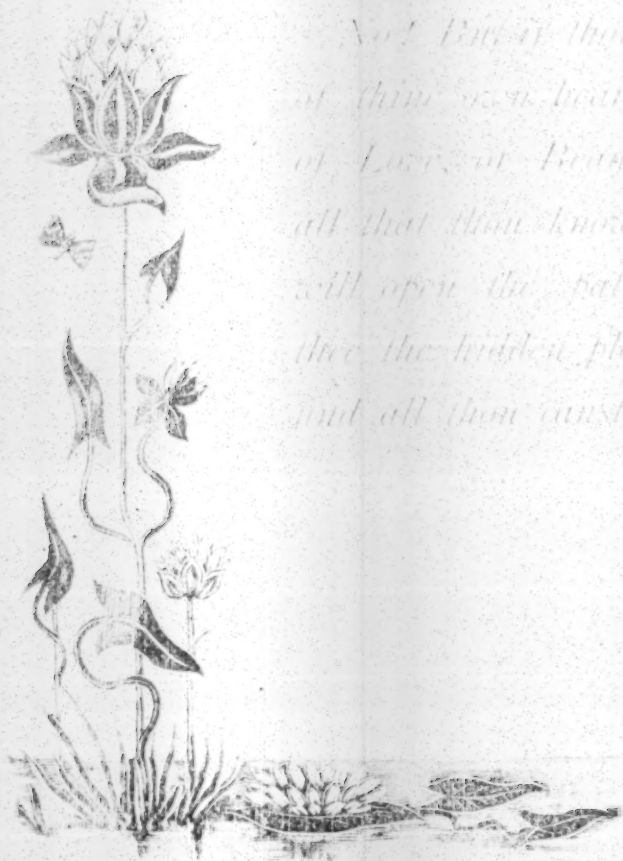 No! But if thou
of thine own hear
of Love, or Beau
all that thou know
will open the pat
thee the hidden pl
and all thou canst